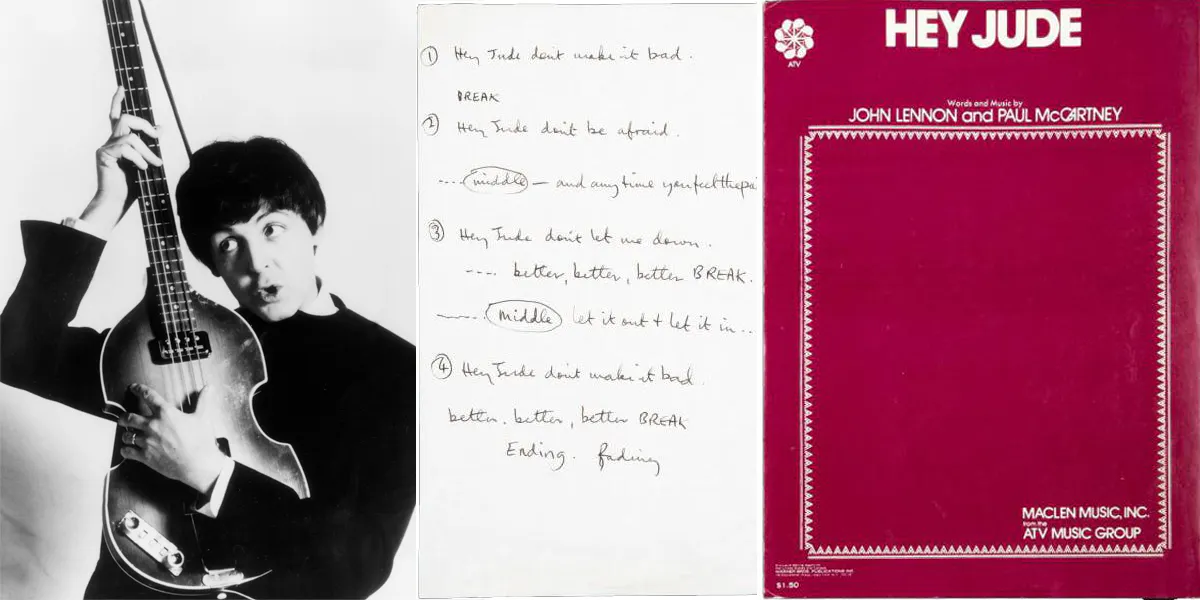 ① Hey Jude dont make it bad.
BREAK
② Hey Jude don't be afraid.
---- middle — and any time you feel the pai
③ Hey Jude don't let me down.
---- better, better, better BREAK.
middle let it out + let it in ..
④ Hey Jude don't make it bad.
better. better, better BREAK
Ending. fading
HEY JUDE
ATV
Words and Music by
JOHN LENNON and PAUL McCARTNEY
MACLEN MUSIC, INC.
from the
ATV MUSIC GROUP
WARNER BROS. PUBLICATIONS INC.
$1.50